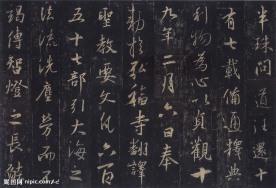 半珠問道往還十
有七載備通釋典
利物為心以貞觀十
九年二月六日奉
勅於弘福寺翻譯
聖教要文凡六百
五十七部引大海之
法流洗塵勞而不
竭傳智燈之長焰
昵图网 nipic.com